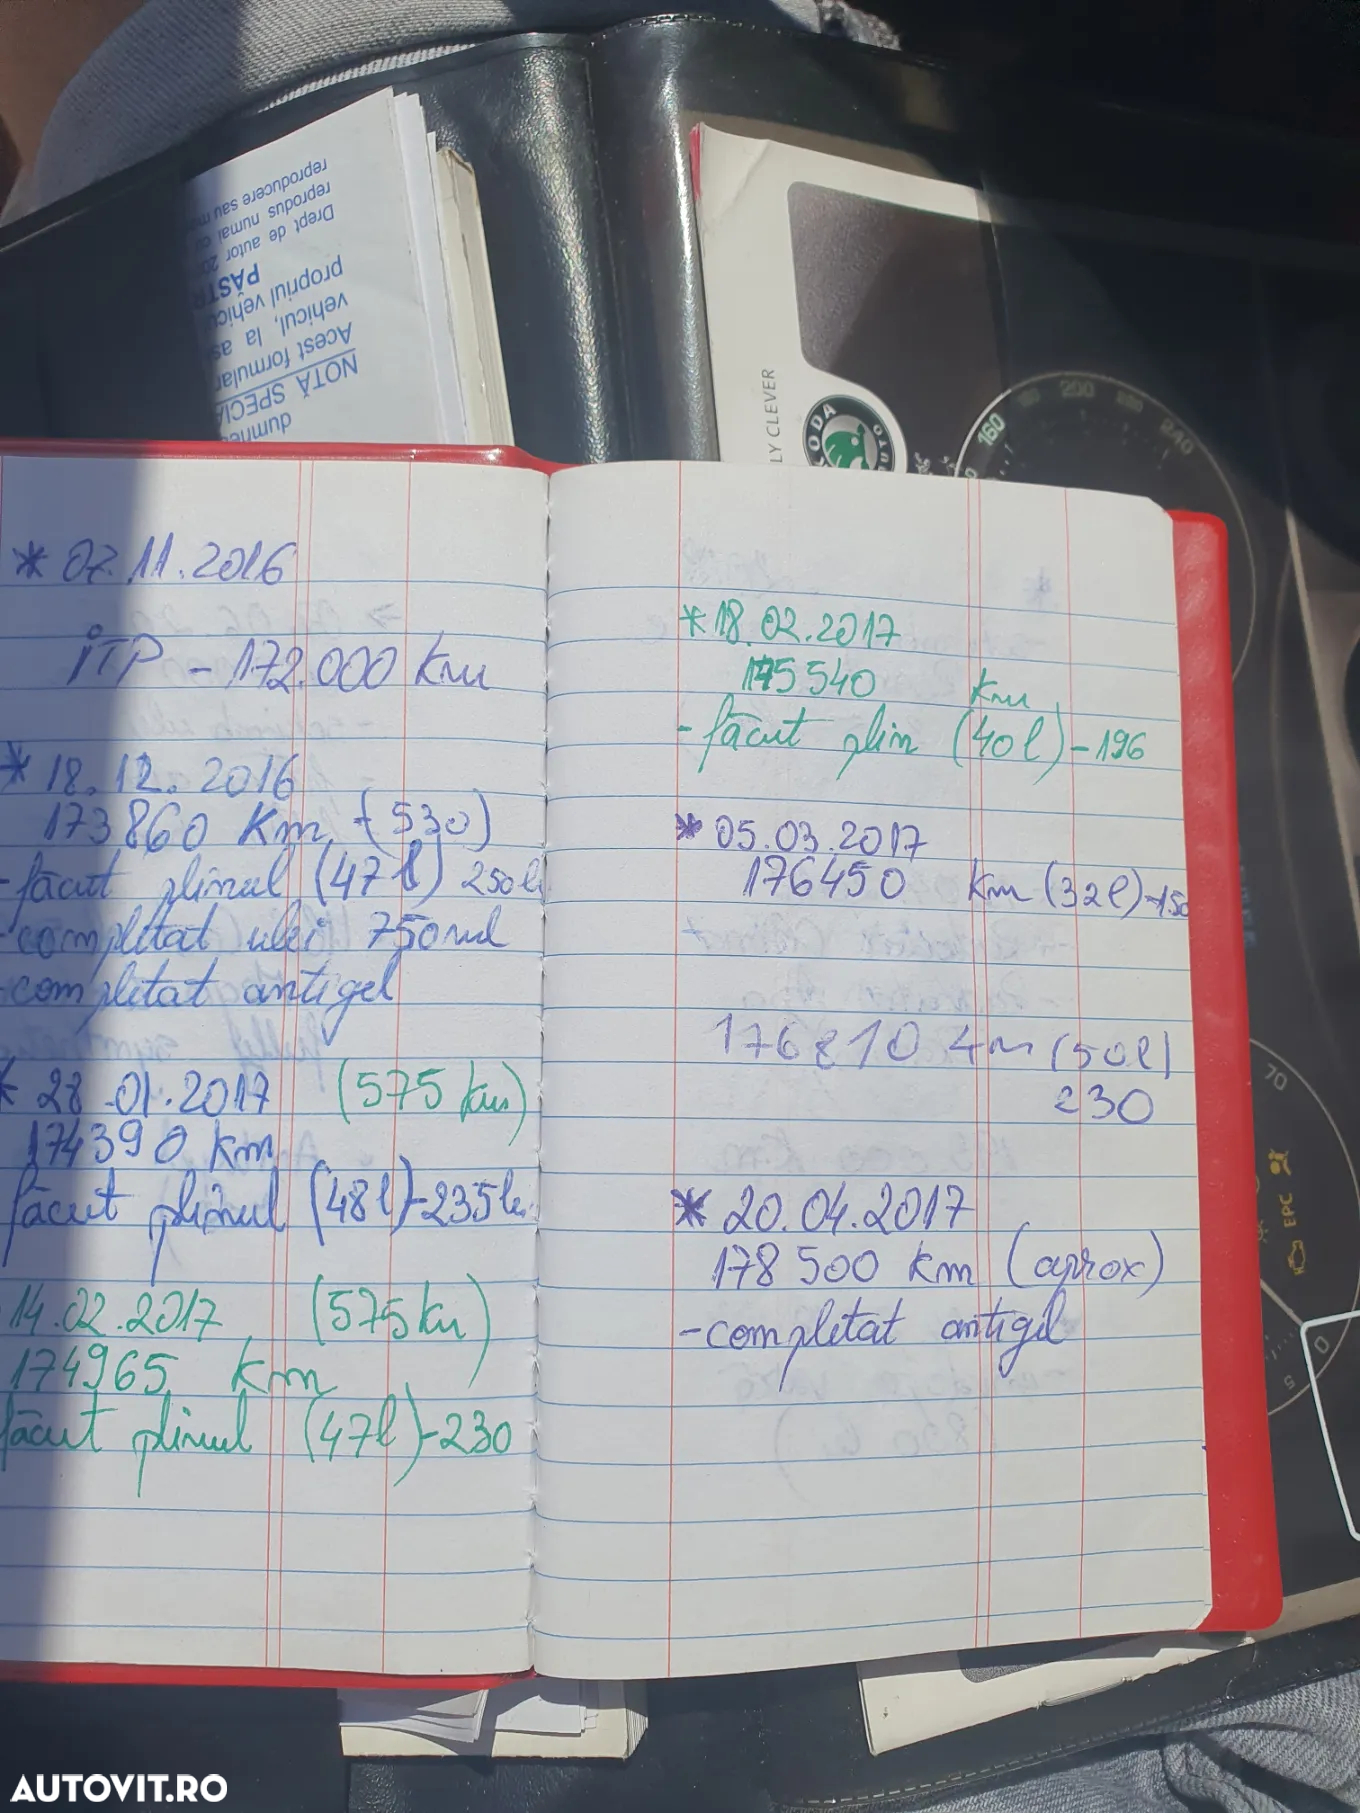 reproducere sau
reprodus numai cu
Drept de autor
PĂSTR
propriul vehicu
vehicul, la as
Acest formular
NOTĂ SPECIA
LY CLEVER
ŠKODA
AUTO
160
200
240
* 02.11.2016
ITP - 172.000 Km
* 18.12.2016
173860 Km (530)
- făcut plinul (47 l) 250 lei
- completat ulei 750 ml
- completat antigel
* 28.01.2017 (575 km)
174390 km
făcut plinul (48l)-235 lei
14.02.2017 (575 km)
174965 km
făcut plinul (47l)-230
* 18.02.2017
175540 Km
- făcut plin (40l)-196
* 05.03.2017
176450 Km (32l)-150
176810 km (50l)
230
* 20.04.2017
178500 km (aprox)
- completat antigel
70
EPC
0
5
AUTOVIT.RO